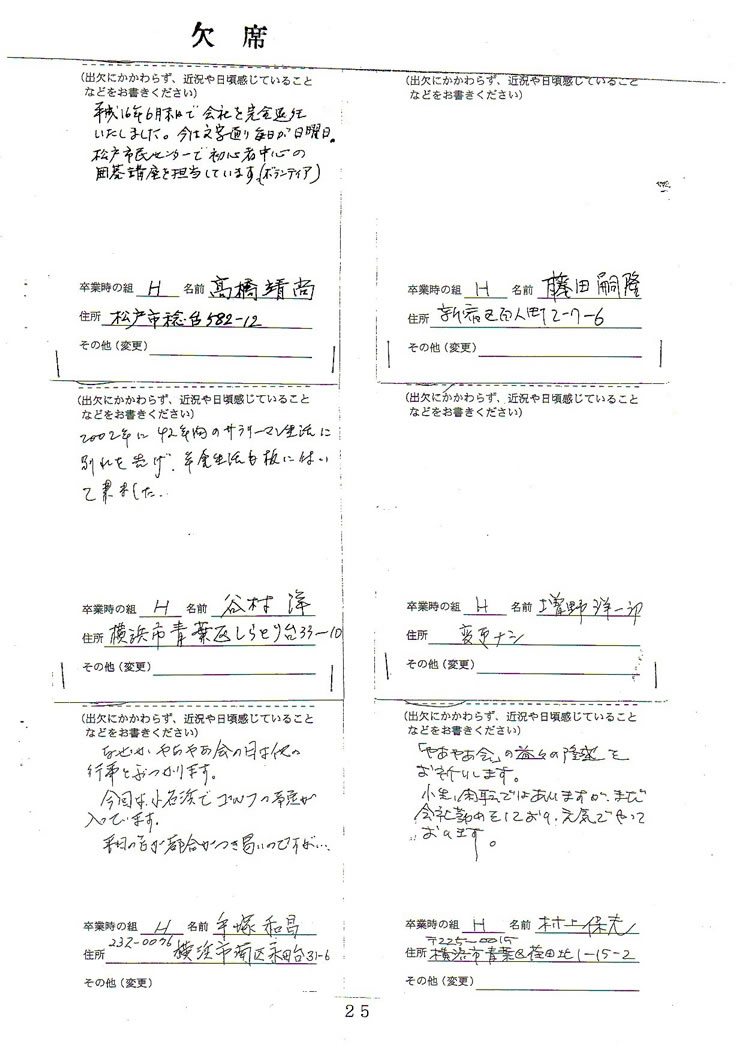 欠席
(出欠にかかわらず、近況や日頃感じていること
などをお書きください)
平成16年6月末日で会社を完全退任
いたしました。今は文字通り毎日が日曜日。
松戸市民センターで初心者中心の
囲碁講座を担当しています。(ボランティア)
卒業時の組 H 名前 髙橋靖尚
住所 松戸市稔台582-12
その他(変更)
(出欠にかかわらず、近況や日頃感じていること
などをお書きください)
卒業時の組 H 名前 藤田嗣隆
住所 新宿区百人町2-7-6
その他(変更)
(出欠にかかわらず、近況や日頃感じていること
などをお書きください)
2002年に42年間のサラリーマン生活に
別れを告げ、年金生活も板についい
て来ました..
卒業時の組 H 名前 谷村 洋
住所 横浜市青葉区しらとり台33-10
その他(変更)
(出欠にかかわらず、近況や日頃感じていること
などをお書きください)
卒業時の組 H 名前 増野洋一郎
住所 変更ナシ
その他(変更)
(出欠にかかわらず、近況や日頃感じていること
などをお書きください)
なぜかやあやあ会の日は他の
行事とぶつかります。
今回は小石浜でゴルフの予定が
入っています。
平日の方が都合がつき易いのですが…
卒業時の組 H 名前 手塚和昌
232-0076
住所 横浜市南区永田台31-6
その他(変更)
(出欠にかかわらず、近況や日頃感じていること
などをお書きください)
「やあやあ会」の益々の隆盛を
お祈りします。
小生、ではありますが、まだ
会社勤めをしており、元気でやって
おります。
卒業時の組 H 名前 村上保
〒225-0015
住所 横浜市青葉区荏田北1-15-2
その他(変更)
25